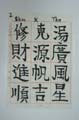 湯廣風星
克源帆吉
修財進順